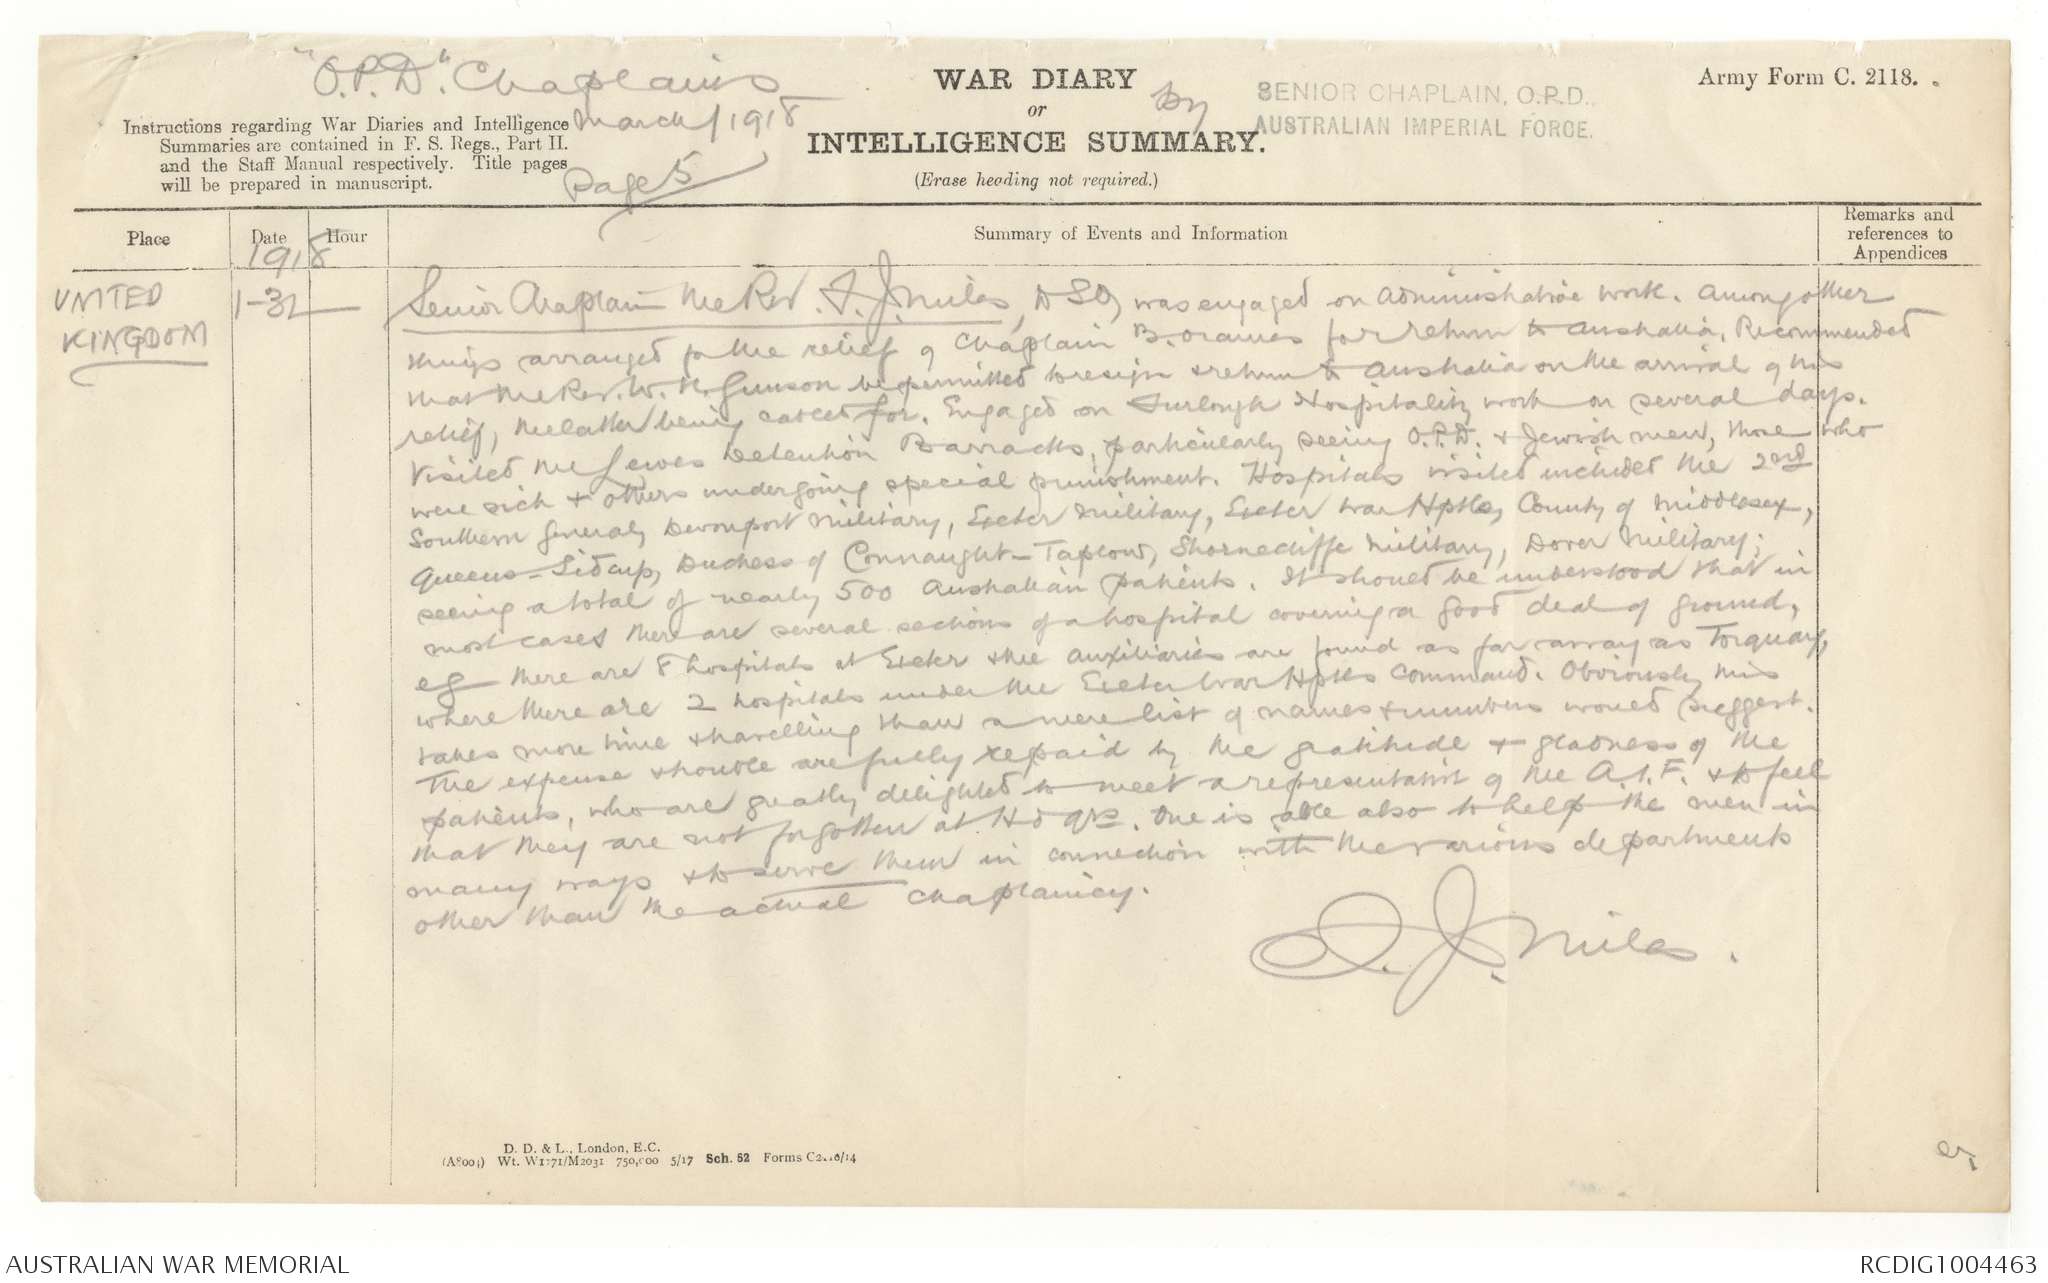 "O.P.D". Chaplains
March/1918
Page 5
WAR DIARY
or
INTELLIGENCE SUMMARY.
(Erase heading not required.)
by
SENIOR CHAPLAIN, O.P.D.
AUSTRALIAN IMPERIAL FORCE.
Army Form C. 2118.
Instructions regarding War Diaries and Intelligence
Summaries are contained in F. S. Regs., Part II.
and the Staff Manual respectively. Title pages
will be prepared in manuscript.
Place
Date
Hour
Summary of Events and Information
Remarks and
references to
Appendices
1918
UNITED
KINGDOM
1-31
Senior Chaplain the Rev. F. J. Miles, DSO, was engaged on administrative work. Among other
things arranged for the relief of Chaplain B. Oraines for return to Australia. Recommended
that the Rev. W. N. Gunson be permitted to resign & return to Australia on the arrival of his
relief, the latter being cabled for. Engaged on Furlough Hospitality work on several days.
Visited the Lewes Detention Barracks, particularly seeing O.P.D. & Jewish men, those who
were sick & others undergoing special punishment. Hospitals visited included the 2nd
Southern General, Devonport Military, Exeter Military, Exeter War Hptls, County of Middlesex,
Queens-Sidcup, Duchess of Connaught-Taplow, Shorncliffe Military, Dover Military;
seeing a total of nearly 500 Australian patients. It should be understood that in
most cases there are several sections of a hospital covering a good deal of ground,
eg there are 8 hospitals at Exeter & the auxiliaries are found as far away as Torquay,
where there are 2 hospitals under the Exeter War Hptls Command. Obviously this
takes more time & travelling than a mere list of names & numbers would suggest.
The expense & trouble are fully repaid by the gratitude & gladness of the
patients, who are greatly delighted to meet a representative of the A.I.F. & to feel
that they are not forgotten at Hd Qrs. One is able also to help the men in
many ways & to serve them in connection with the various departments
other than the actual Chaplaincy.
F. J. Miles.
D. D. & L., London, E.C.
Wt. W1771/M2031 750,000 5/17 Sch. 52 Forms C2118/14
AUSTRALIAN WAR MEMORIAL
RCDIG1004463